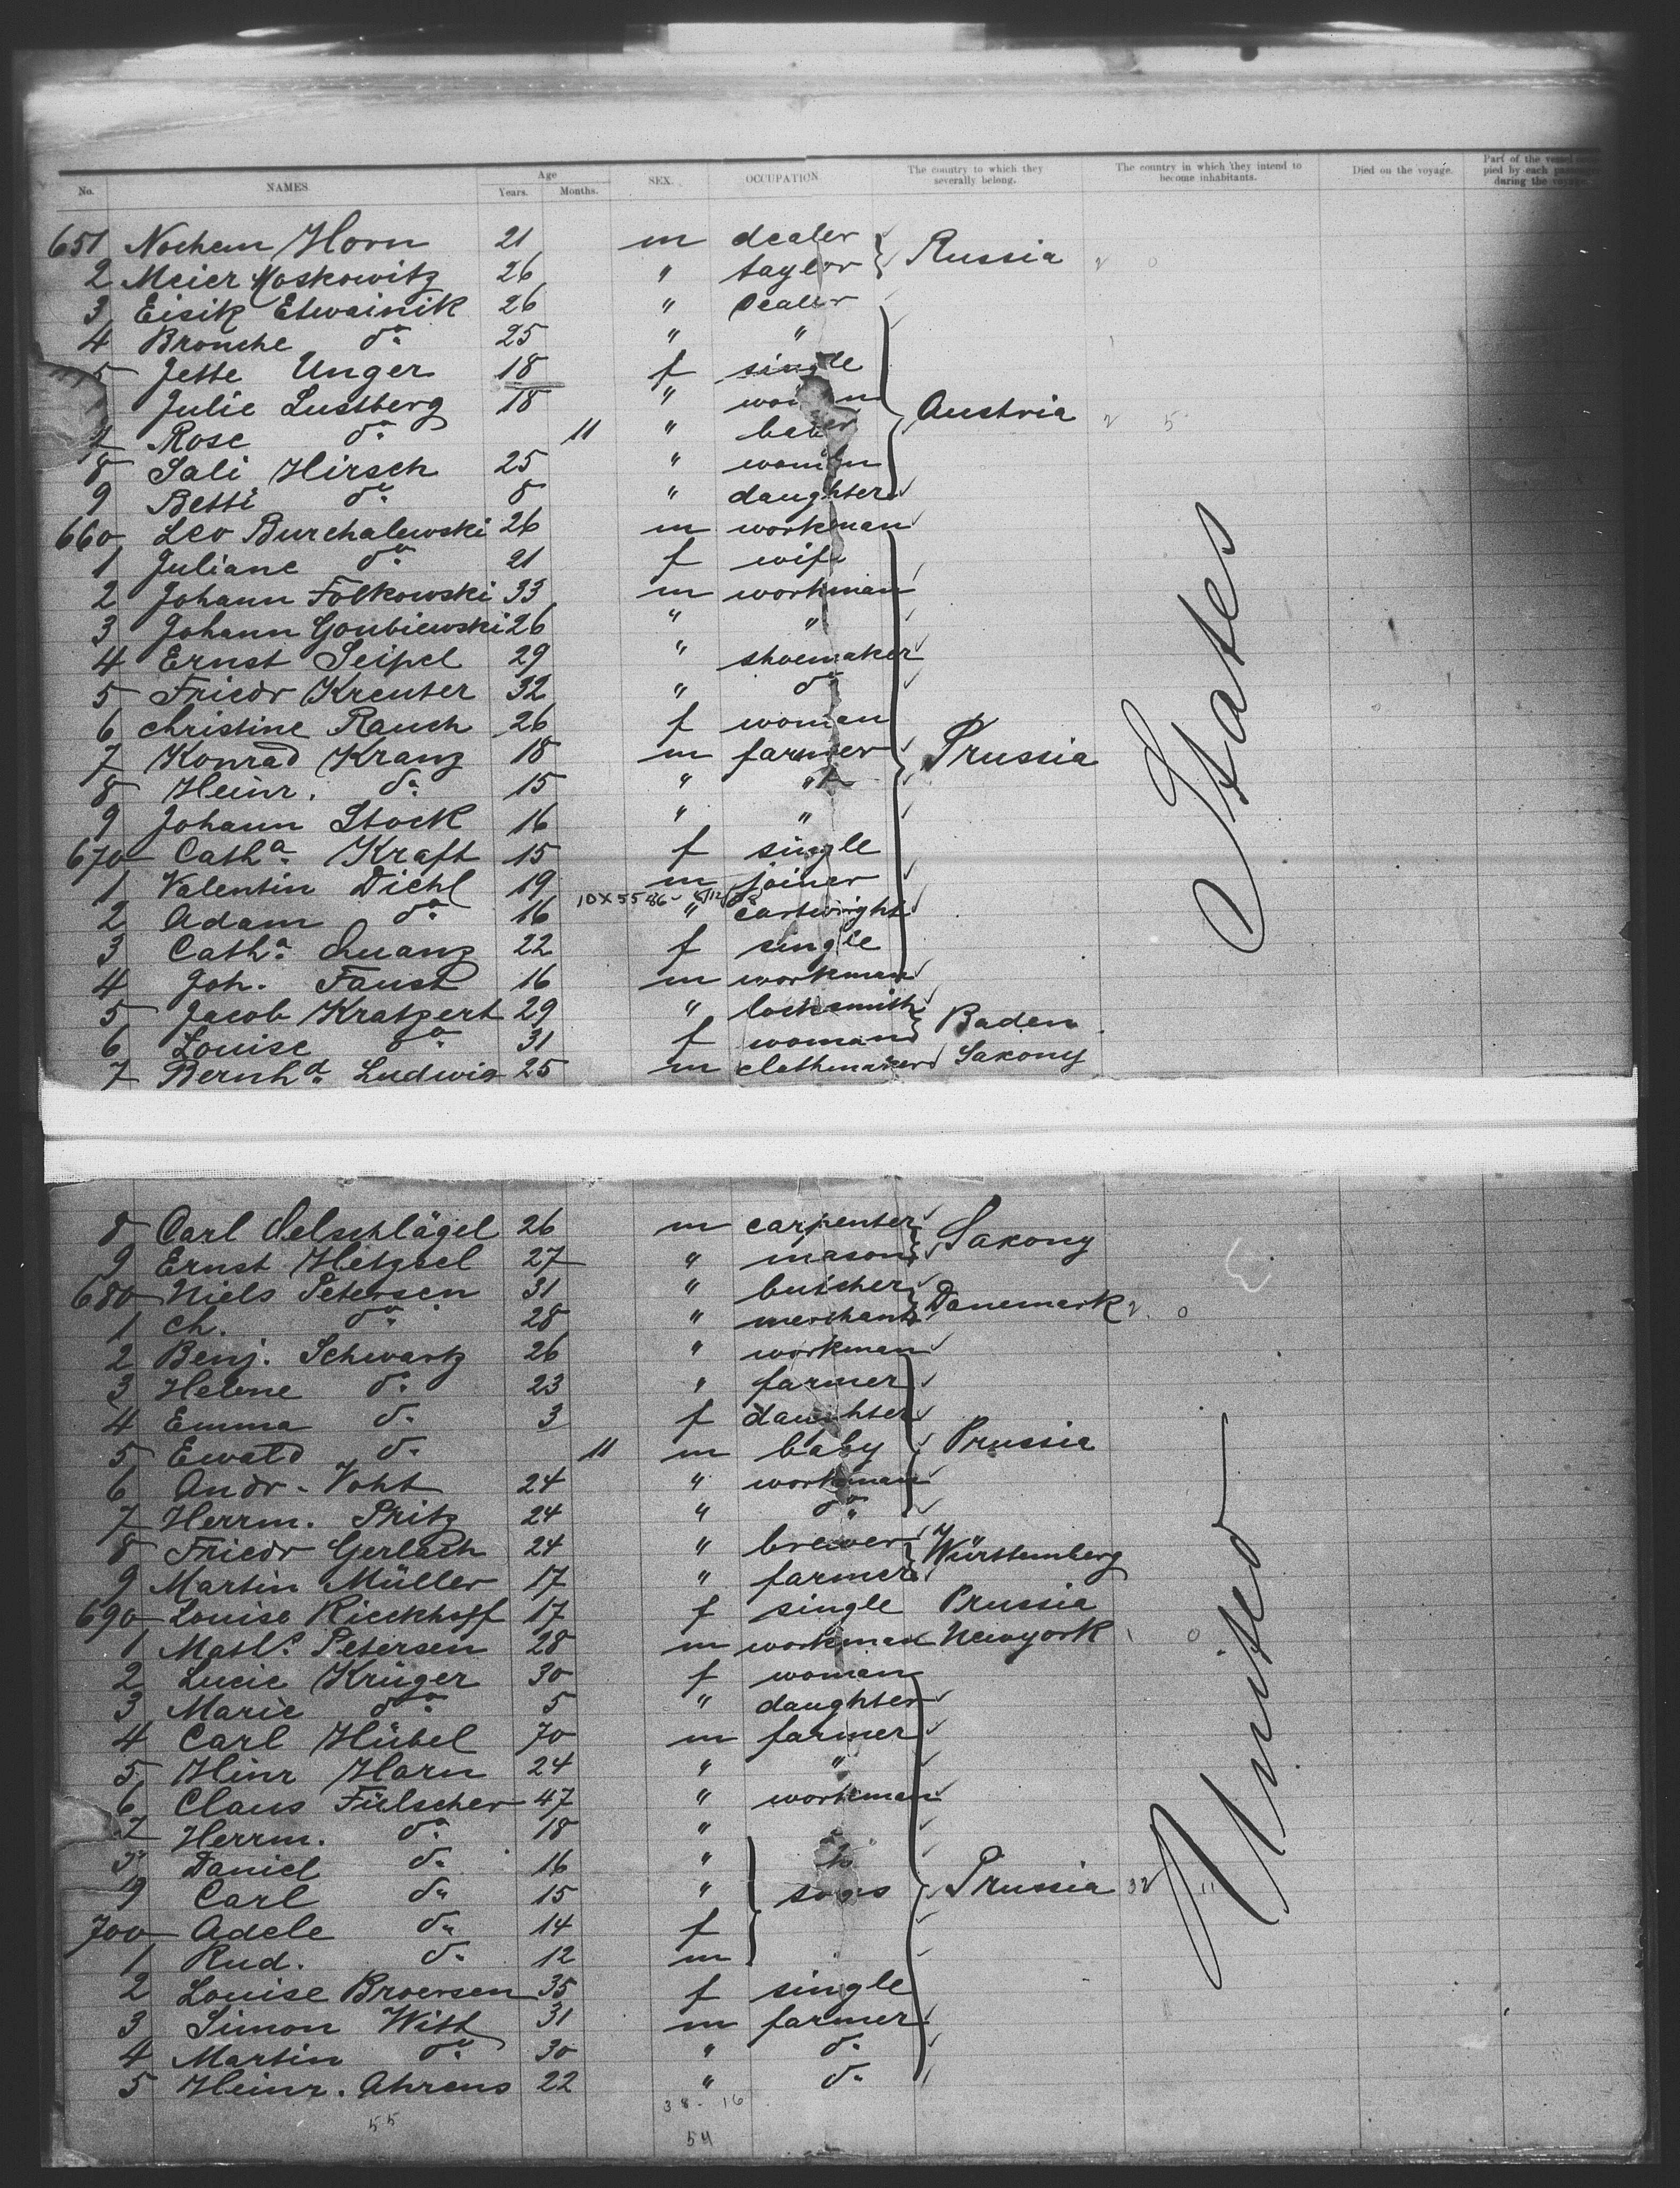 No. NAMES Age Years. Months. SEX. OCCUPATION The country to which they severally belong. The country in which they intend to become inhabitants. Died on the voyage. Part of the vessel pied by each during the voyage.
651 Nochem Horn 21 m dealer Russia
2 Meier Moskowitz 26 " taylor
3 Eisik Etwainik 26 " Dealer
4 Bronche do 25 " "
5 Jette Unger 18 f single
Julie Lustberg 18 " woman Austria
7 Rose do 11 "
8 Sali Hirsch 25 " woman
9 Betti do 8 " daughter
660 Leo Burchalewski 26 m workman
1 Juliane do 21 f wife
2 Johann Folkowski 33 m workman
3 Johann Goubiewski 26 " "
4 Ernst Seipel 29 " shoemaker
5 Friedr Kreuter 32 " do
6 Christine Rauch 26 f woman
7 Konrad Kranz 18 m farmer Prussia
8 Heinr. do 15 " "
9 Johann Stock 16 " "
670 Catha. Kraft 15 f single
1 Valentin Diehl 19 m joiner
2 Adam do 16 " cartwright
3 Catha. Quanz 22 f single
4 Joh. Faust 16 m workman
5 Jacob Kratzert 29 " locksmith Baden
6 Louise do 31 f woman
7 Bernhd. Ludwig 25 m clothmaker Saxony
States
8 Carl Oelschlägel 26 m carpenter Saxony
9 Ernst Hetzel 27 " mason
680 Niels Petersen 31 " butcher Danemark 2 0
1 Ch. do 28 " merchant
2 Benj. Schwartz 26 " workman
3 Helene do 23 " farmer
4 Emma do 3 f daughter
5 Ewald do 11 m baby Prussia
6 Andr. Voht 24 " workman
7 Herrm. Pritz 24 " do
8 Friedr Gerlach 24 " brewer Württemberg
9 Martin Müller 17 " farmer
690 Louise Rieckhoff 17 f single Prussia
1 Math. Petersen 28 m workman Newyork 1 0
2 Lucie Krüger 30 f woman
3 Marie do 5 " daughter
4 Carl Hübel 70 m farmer
5 Hinr Harn 24 " "
6 Claus Fülscher 47 " workman
7 Herrm. do 18 "
8 Daniel do 16 "
9 Carl do 15 " sons Prussia 32 11
700 Adele do 14 f
1 Rud. do 12 m
2 Louise Broersen 35 f single
3 Simon Witt 31 m farmer
4 Martin do 30 " do
5 Heinr. Ahrens 22 " do
United
38 - 16
55
54